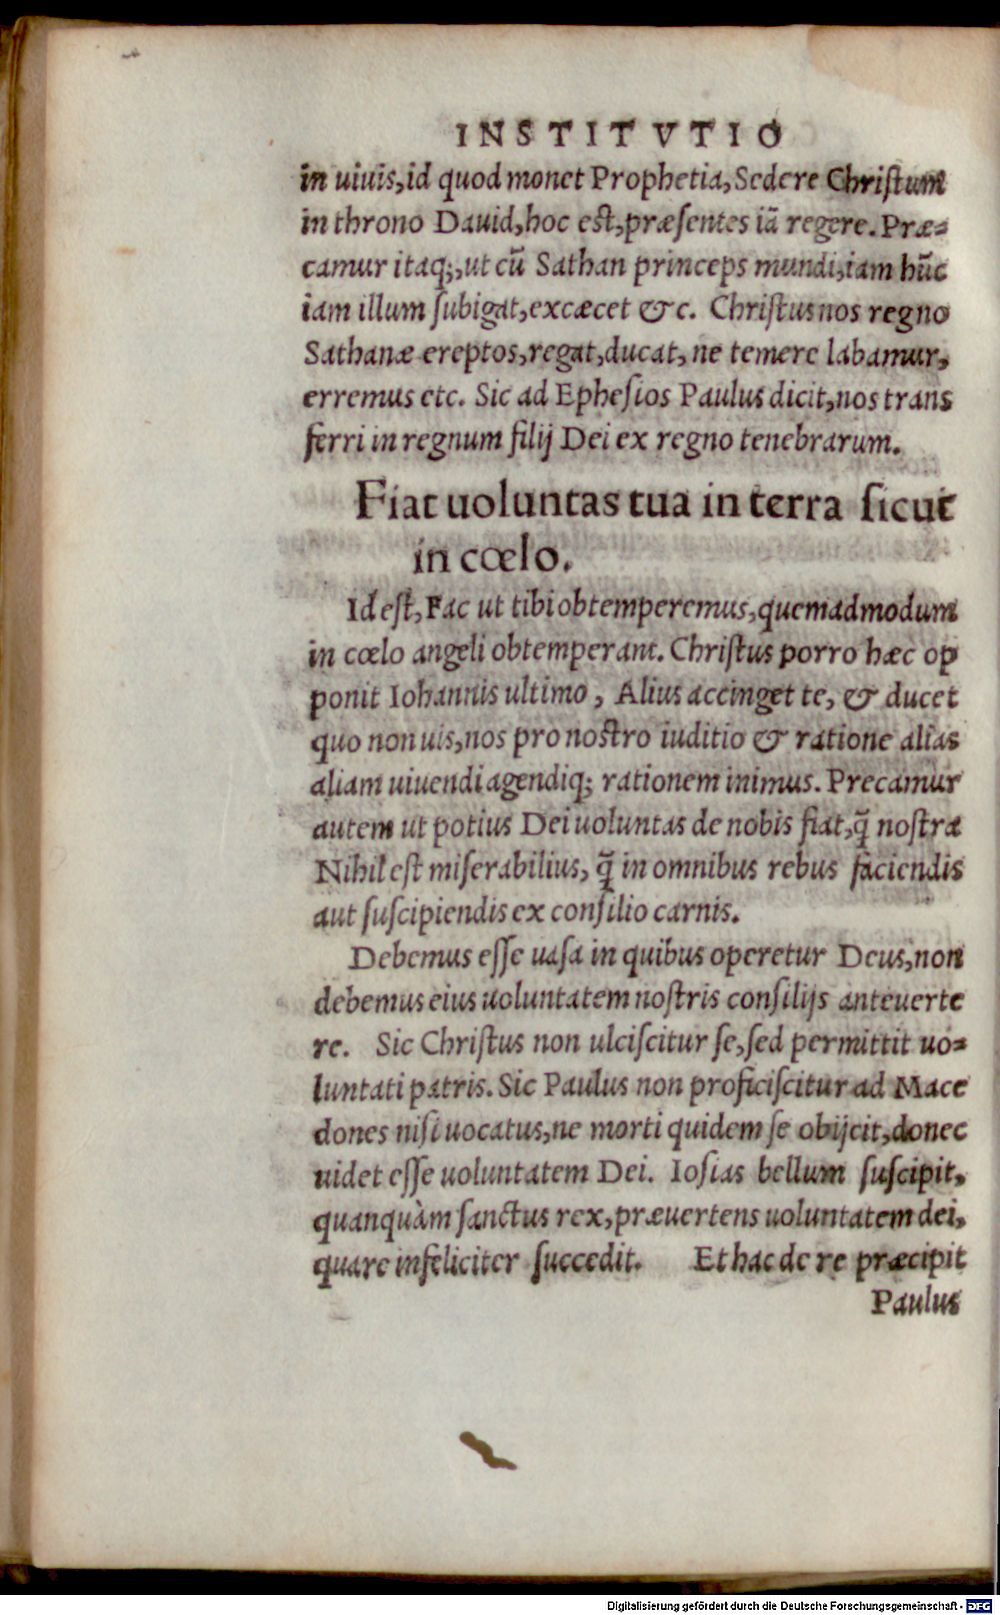 INSTITVTIO
in uiuis, id quod monet Prophetia, Sedere Christum
in throno Dauid, hoc est, præsentes iã regere. Præ=
camur itaq;, ut cũ Sathan princeps mundi, iam hũc
iam illum subigat, excæcet &c. Christus nos regno
Sathanæ ereptos, regat, ducat, ne temere labamur,
erremus etc. Sic ad Ephesios Paulus dicit, nos trans
ferri in regnum filij Dei ex regno tenebrarum.
Fiat uoluntas tua in terra sicut
in cœlo.
Id est, Fac ut tibi obtemperemus, quemadmodum
in cœlo angeli obtemperant. Christus porro hæc op
ponit Iohannis ultimo, Alius accinget te, & ducet
quo non uis, nos pro nostro iuditio & ratione alias
aliam uiuendi agendiq; rationem inimus. Precamur
autem ut potius Dei uoluntas de nobis fiat, q̃ nostra
Nihil est miserabilius, q̃ in omnibus rebus faciendis
aut suscipiendis ex consilio carnis.
Debemus esse uasa in quibus operetur Deus, non
debemus eius uoluntatem nostris consilijs anteuerte
re. Sic Christus non ulciscitur se, sed permittit uo=
luntati patris. Sic Paulus non proficiscitur ad Mace
dones nisi uocatus, ne morti quidem se obijcit, donec
uidet esse uoluntatem Dei. Iosias bellum suscipit,
quanquàm sanctus rex, præuertens uoluntatem dei,
quare infeliciter succedit. Et hac de re præcipit
Paulus
Digitalisierung gefördert durch die Deutsche Forschungsgemeinschaft - DFG